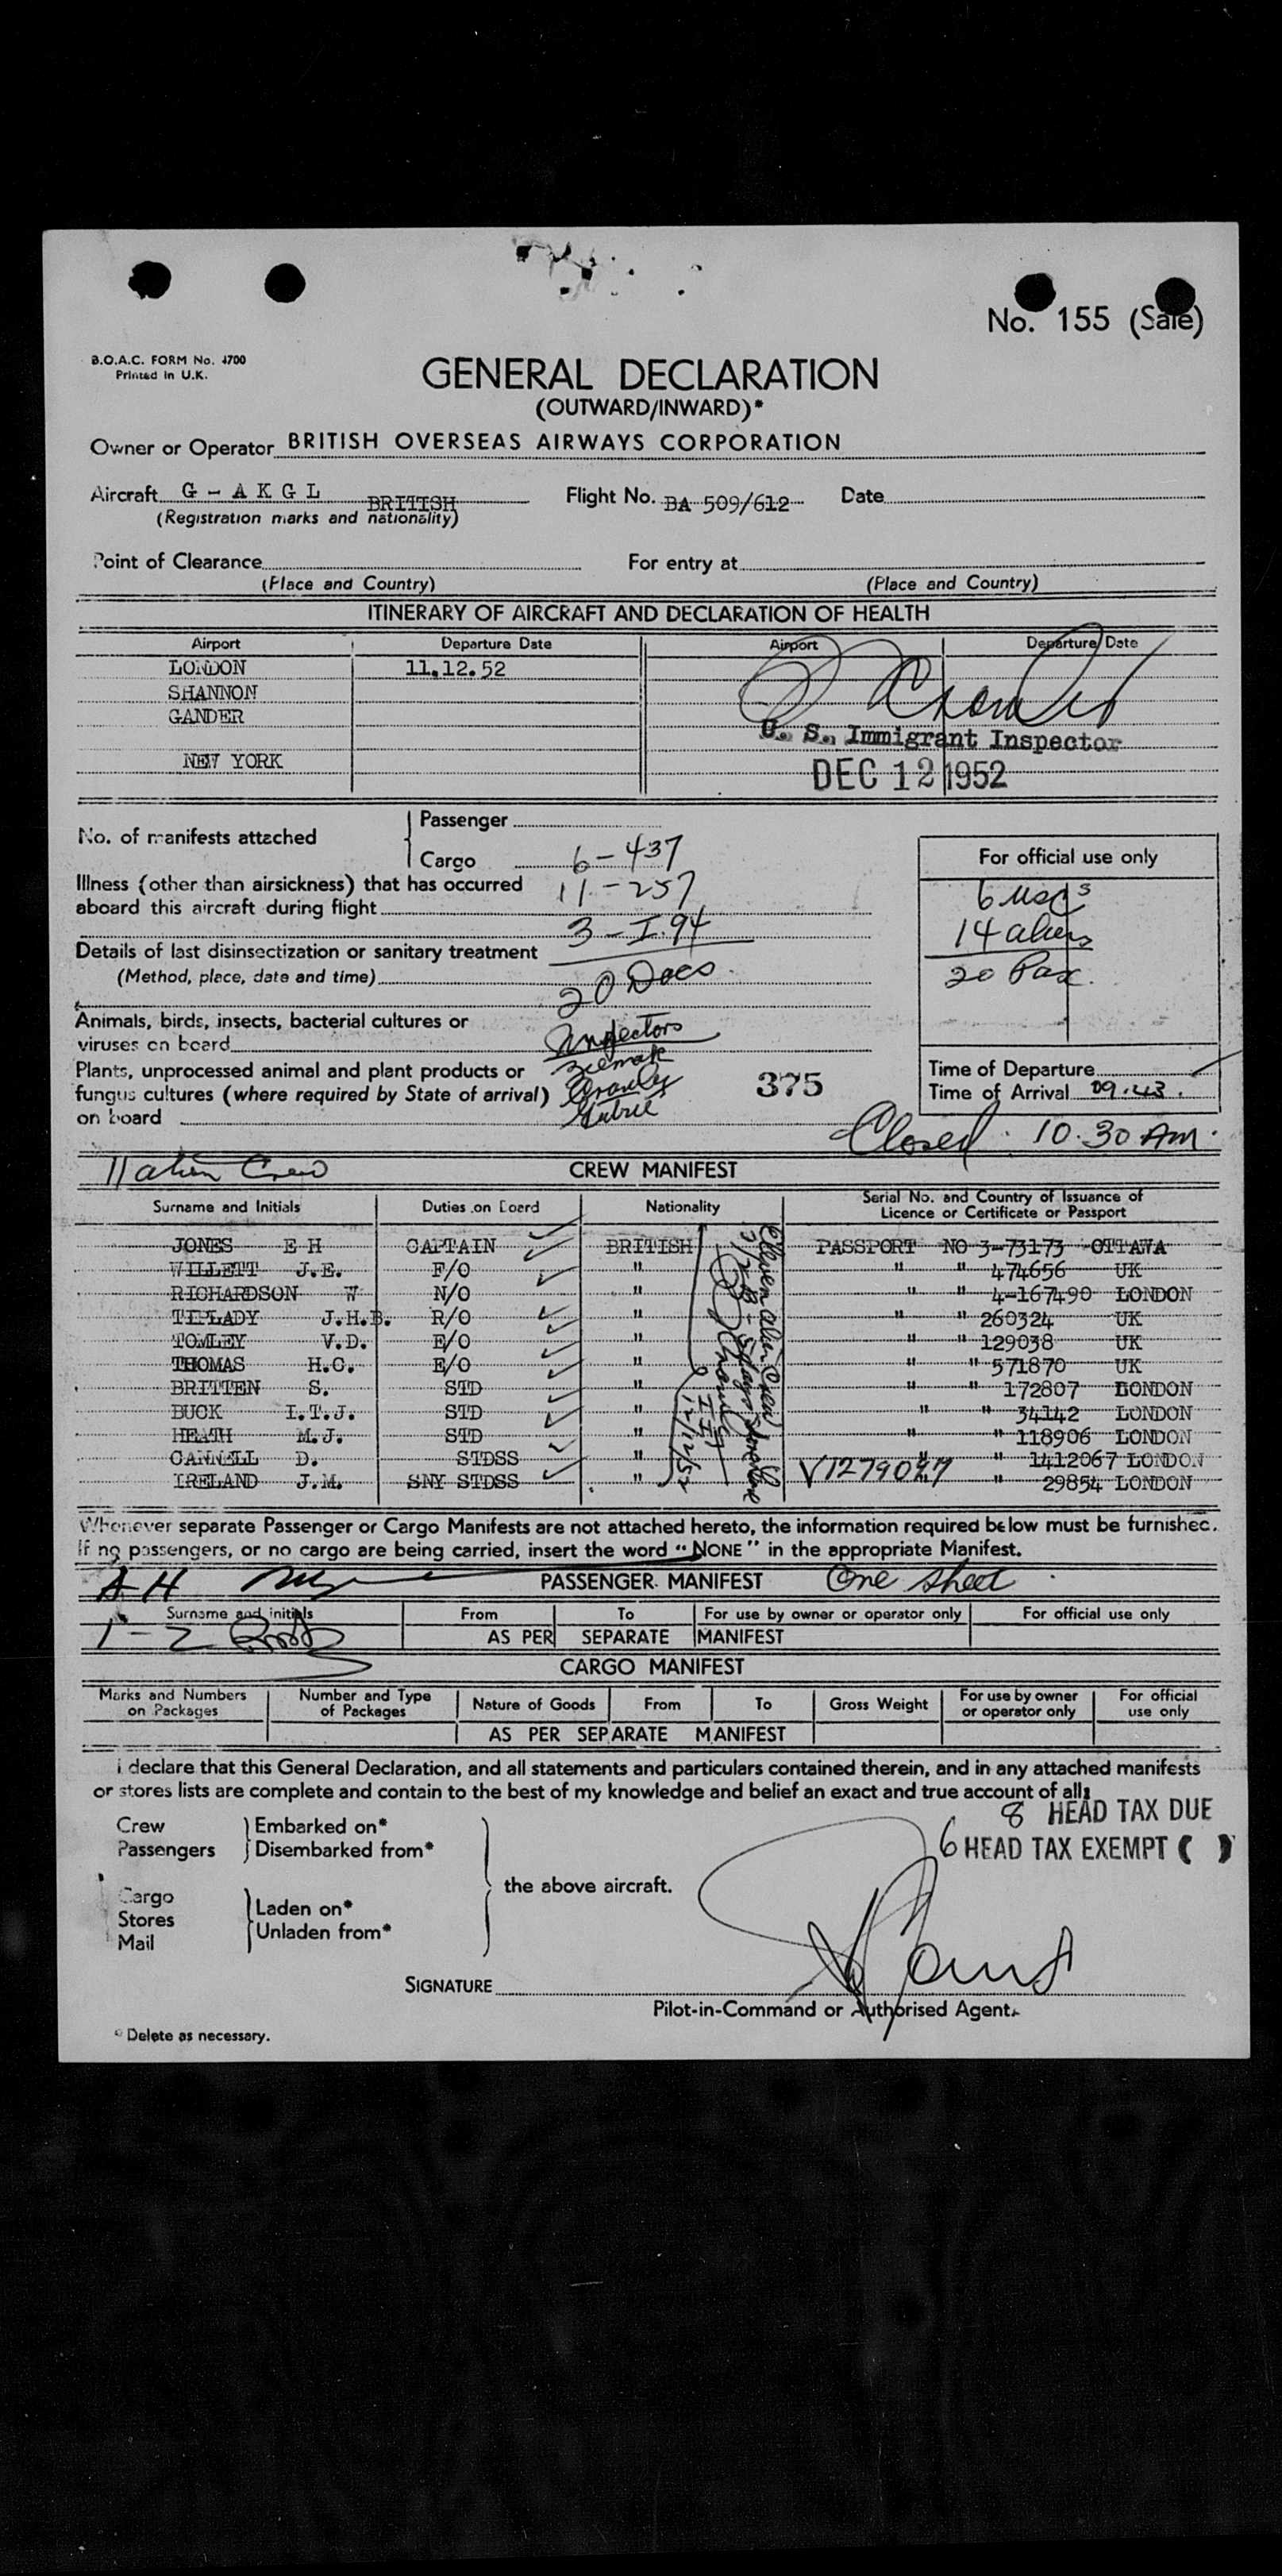 No. 155 (Sale)
B.O.A.C. FORM No. 4700
Printed in U.K.
GENERAL DECLARATION
(OUTWARD/INWARD)*
Owner or Operator BRITISH OVERSEAS AIRWAYS CORPORATION
Aircraft G - A K G L BRITISH Flight No. BA 509/612 Date
(Registration marks and nationality)
Point of Clearance For entry at
(Place and Country) (Place and Country)
ITINERARY OF AIRCRAFT AND DECLARATION OF HEALTH
Airport Departure Date Airport Departure Date
LONDON 11.12.52
SHANNON
GANDER
U. S. Immigrant Inspector
NEW YORK
DEC 12 1952
No. of manifests attached
Passenger
Cargo 6 - 437
For official use only
Illness (other than airsickness) that has occurred 11 - 257
aboard this aircraft during flight
6 uscs
3 - I.94
14 aliens
Details of last disinsectization or sanitary treatment
(Method, place, date and time) 20 Docs
20 Pax.
Animals, birds, insects, bacterial cultures or
viruses on board Inspectors
Plants, unprocessed animal and plant products or
fungus cultures (where required by State of arrival)
on board
375
Time of Departure
Time of Arrival 09.43.
Closed. 10.30 Am.
11 alien Crew CREW MANIFEST
Surname and Initials Duties on Board Nationality Serial No. and Country of Issuance of Licence or Certificate or Passport
JONES E H CAPTAIN BRITISH PASSPORT NO 3-73173 OTTAWA
WILLETT J.E. F/O " " " 474656 UK
RICHARDSON W N/O " " " 4-167490 LONDON
TIPLADY J.H.B. R/O " " " 260324 UK
TOMLEY V.D. E/O " " " 129038 UK
THOMAS H.C. E/O " " " 571870 UK
BRITTEN S. STD " " " 172807 LONDON
BUCK I.T.J. STD " " " 34142 LONDON
HEATH M.J. STD " " 118906 LONDON
CANNELL D. STDSS " " " 1412067 LONDON
IRELAND J.M. SNY STDSS " V1279027 " 29854 LONDON
Eleven alien Crew
12/12/52
Whenever separate Passenger or Cargo Manifests are not attached hereto, the information required below must be furnished.
If no passengers, or no cargo are being carried, insert the word "NONE" in the appropriate Manifest.
A H PASSENGER MANIFEST One sheet
Surname and initials From To For use by owner or operator only For official use only
1 - 2 AS PER SEPARATE MANIFEST
CARGO MANIFEST
Marks and Numbers on Packages Number and Type of Packages Nature of Goods From To Gross Weight For use by owner or operator only For official use only
AS PER SEPARATE MANIFEST
I declare that this General Declaration, and all statements and particulars contained therein, and in any attached manifests
or stores lists are complete and contain to the best of my knowledge and belief an exact and true account of all:
8 HEAD TAX DUE
6 HEAD TAX EXEMPT ( )
Crew Embarked on*
Passengers Disembarked from*
the above aircraft.
Cargo
Stores Laden on*
Mail Unladen from*
SIGNATURE
Pilot-in-Command or Authorised Agent.
* Delete as necessary.